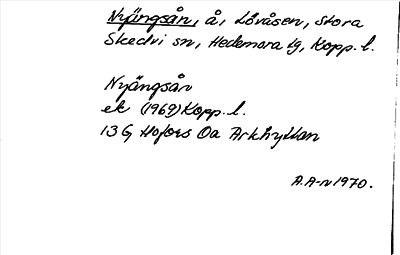 Nyängsån, å, Lövåsen, Stora
Skedvi sn, Hedemora tg, Kopp. l.
Nyängsån
ek (1969) Kopp. l.
13 G Hofors 0a Arkhyttan
A.A-n 1970.